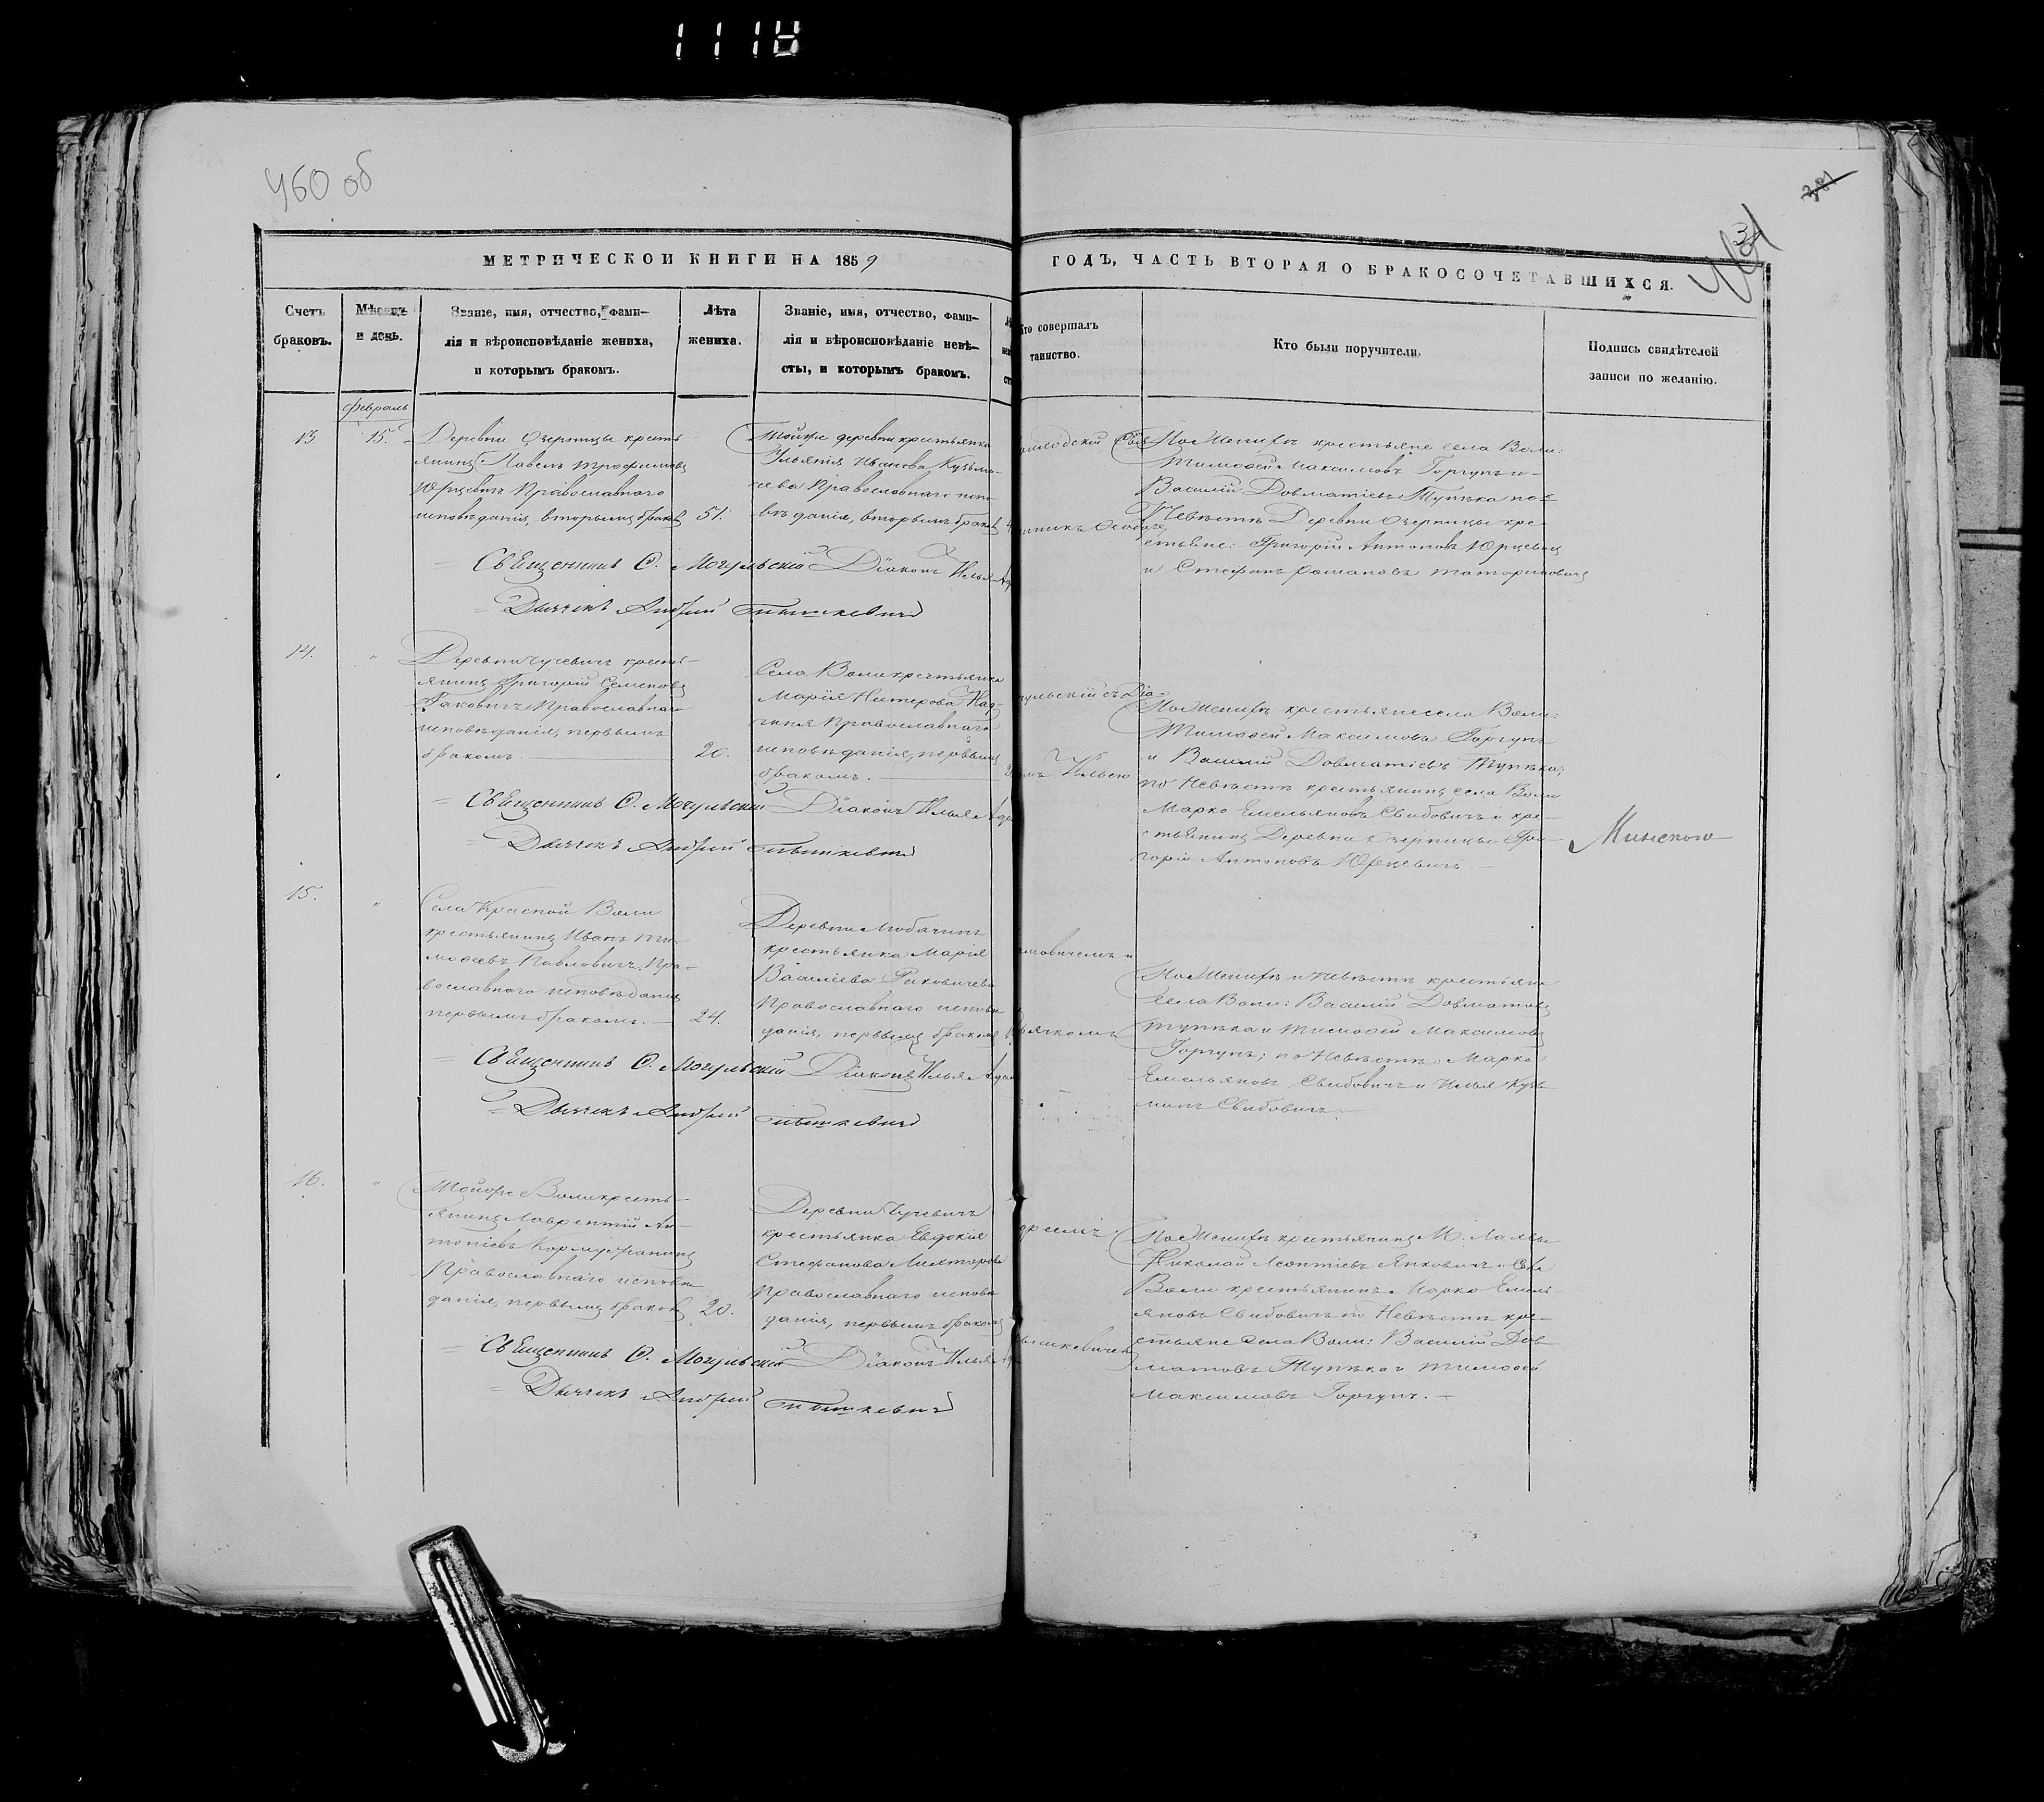 460 об
381
МЕТРИЧЕСКОЙ КНИГИ НА 1859
ГОДЪ, ЧАСТЬ ВТОРАЯ О БРАКОСОЧЕТАВШИХСЯ.
Счетъ
браковъ.
Мѣсяцъ
и день.
Званіе, имя, отчество, фами-
лія и вѣроисповѣданіе жениха,
и которымъ бракомъ.
Лѣта
жениха.
Званіе, имя, отчество, фами-
лія и вѣроисповѣданіе невѣ-
сты, и которымъ бракомъ.
Кто совершалъ
таинство.
Кто были поручители.
Подпись свидѣтелей
записи по желанію.
Февраль
13. 15.
Деревни Озерницы кресть
янинъ Павелъ Трофимовъ
Юрцевичъ Православнаго
исповѣданія, вторымъ браком
51.
Тойже деревни крестьянка
Ульянія Иванова Кузьми-
чева Православнаго испо
вѣданія, вторымъ браком
По Женихѣ крестьяне села Воли:
Тимофей Максимовъ Горгунъ и
Василій Довматіевъ Тупѣка по
Невѣстѣ Деревни Озерницы кре
стьяне: Григорій Антоновъ Юрцевичъ
и Стефанъ Романовъ
Священникъ О. Могульскій Діаконъ Илья
Дьячекъ Андрей
14. "
Деревни Чучевичъ кресть-
янинъ Григорій Семеновъ
Раковичъ Православнаго
исповѣданія, первымъ
бракомъ.
20.
Села Воли крестьянка
Марія Нестерова
Православнаго
исповѣданія, первымъ
бракомъ.
гульскій съ Діа-
номъ Ильею
По Женихѣ крестьяне села Воли:
Тимофей Максимовъ Горгунъ
и Василій Довматіевъ Тупѣка;
по Невѣстѣ крестьянинъ села Воли
Марко Емельяновъ Свибовичъ и кре-
стьянинъ Деревни Озерницы Гри-
горій Антоновъ Юрцевичъ.
Минского
Священникъ О. Могульскій Діаконъ Илья
Дьячекъ Андрей
15. "
Села Красной Воли
крестьянинъ Иванъ Ти-
мофеевъ Павловичъ Пра-
вославнаго исповѣданія
первымъ бракомъ.
24.
Деревни Любачинъ
крестьянка Марія
Василіева Раковичева
Православнаго исповѣ
данія, первымъ бракомъ
мовичемъ и
ьячкомъ
По Женихѣ и Невѣстѣ крестьяне
села Воли: Василій Довматовъ
Тупѣка и Тимофей Максимовъ
Горгунъ; по Невѣстѣ: Марко
Емельяновъ Свибовичъ и Илья Кузь
минъ Свибовичъ.
Священникъ О. Могульскій Діаконъ Илья
Дьячекъ Андрей
16. "
Тойже Воли кресть-
янинъ Лаврентій Ан-
тоніевъ
Православнаго исповѣ
данія, первымъ браком
20.
Деревни Чучевичъ
крестьянка Евдокія
Стефанова
Православнаго исповѣ
данія, первымъ бракомъ
дреемъ
По Женихѣ крестьянинъ М. Лахвы
Николай Леонтіевъ Янковичъ и Села
Воли крестьянинъ Марко Емель-
яновъ Свибовичъ по Невѣстѣ кре-
стьяне Села Воли: Василій Дов-
матовъ Тупѣка и Тимофей
Максимовъ Горгунъ.
Священникъ О. Могульскій Діаконъ Илья
Дьячекъ Андрей